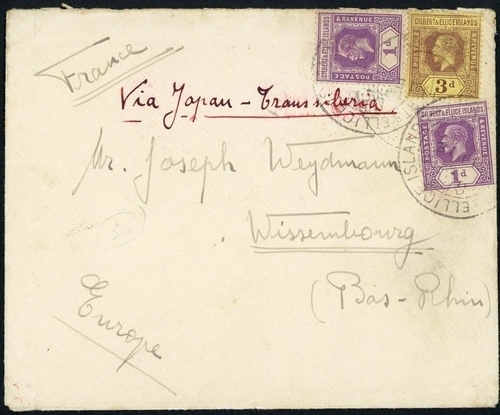 France
Via Japan - Transsiberia
Mr. Joseph Weydmann
Wissembourg
(Bas-Rhin)
Europe
30
& REVENUE
1d
POSTAGE
GILBERT & ELLICE ISLANDS
POSTAGE
& REVENUE
3d
GILBERT & ELLICE ISLANDS
POSTAGE
& REVENUE
1d
ELLICE ISLAND